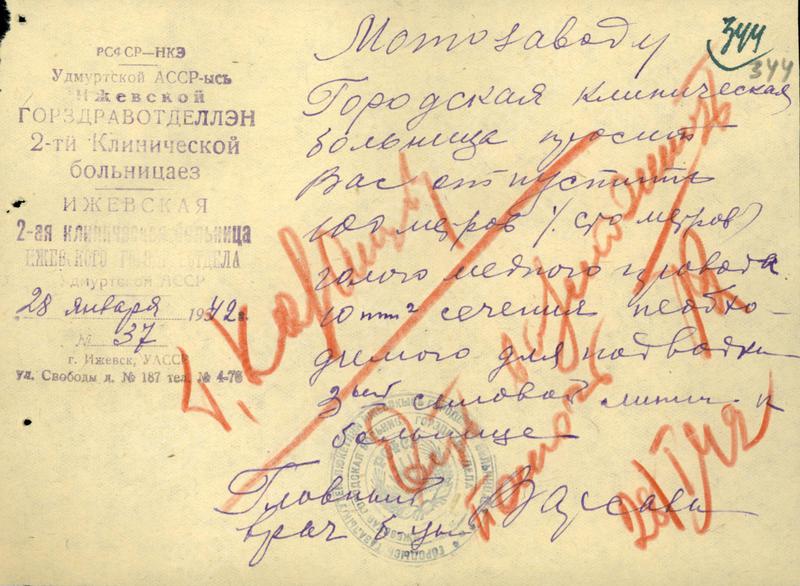 344
344
РСФСР—НКЗ
Удмуртской АССР-ысь
Ижевской
ГОРЗДРАВОТДЕЛЛЭН
2-тӥ Клинической
больницаез
ИЖЕВСКАЯ
2-ая клиническая больница
ИЖЕВСКОГО ГОРЗДРАВОТДЕЛА
Удмуртской АССР
28 января 1942г.
№ 37
г. Ижевск, УАССР
ул. Свободы д. № 187 тел. № 4-76
Мотозаводу
Городская клиническая
больница просит
Вас отпустить
100 метров /. сто метров)
голого медного провода
10 mm² сечения необхо-
димого для подводки
3ьей силовой линии к
больнице
Главный
врач б-цы